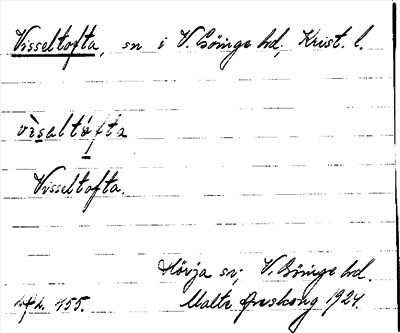 Visseltofta, sn i V. Göinge hd, Krist. l.
vìsəltófta
Visseltofta.
Hörja sn; V. Göinge hd.
155. Malte Areskong 1924.